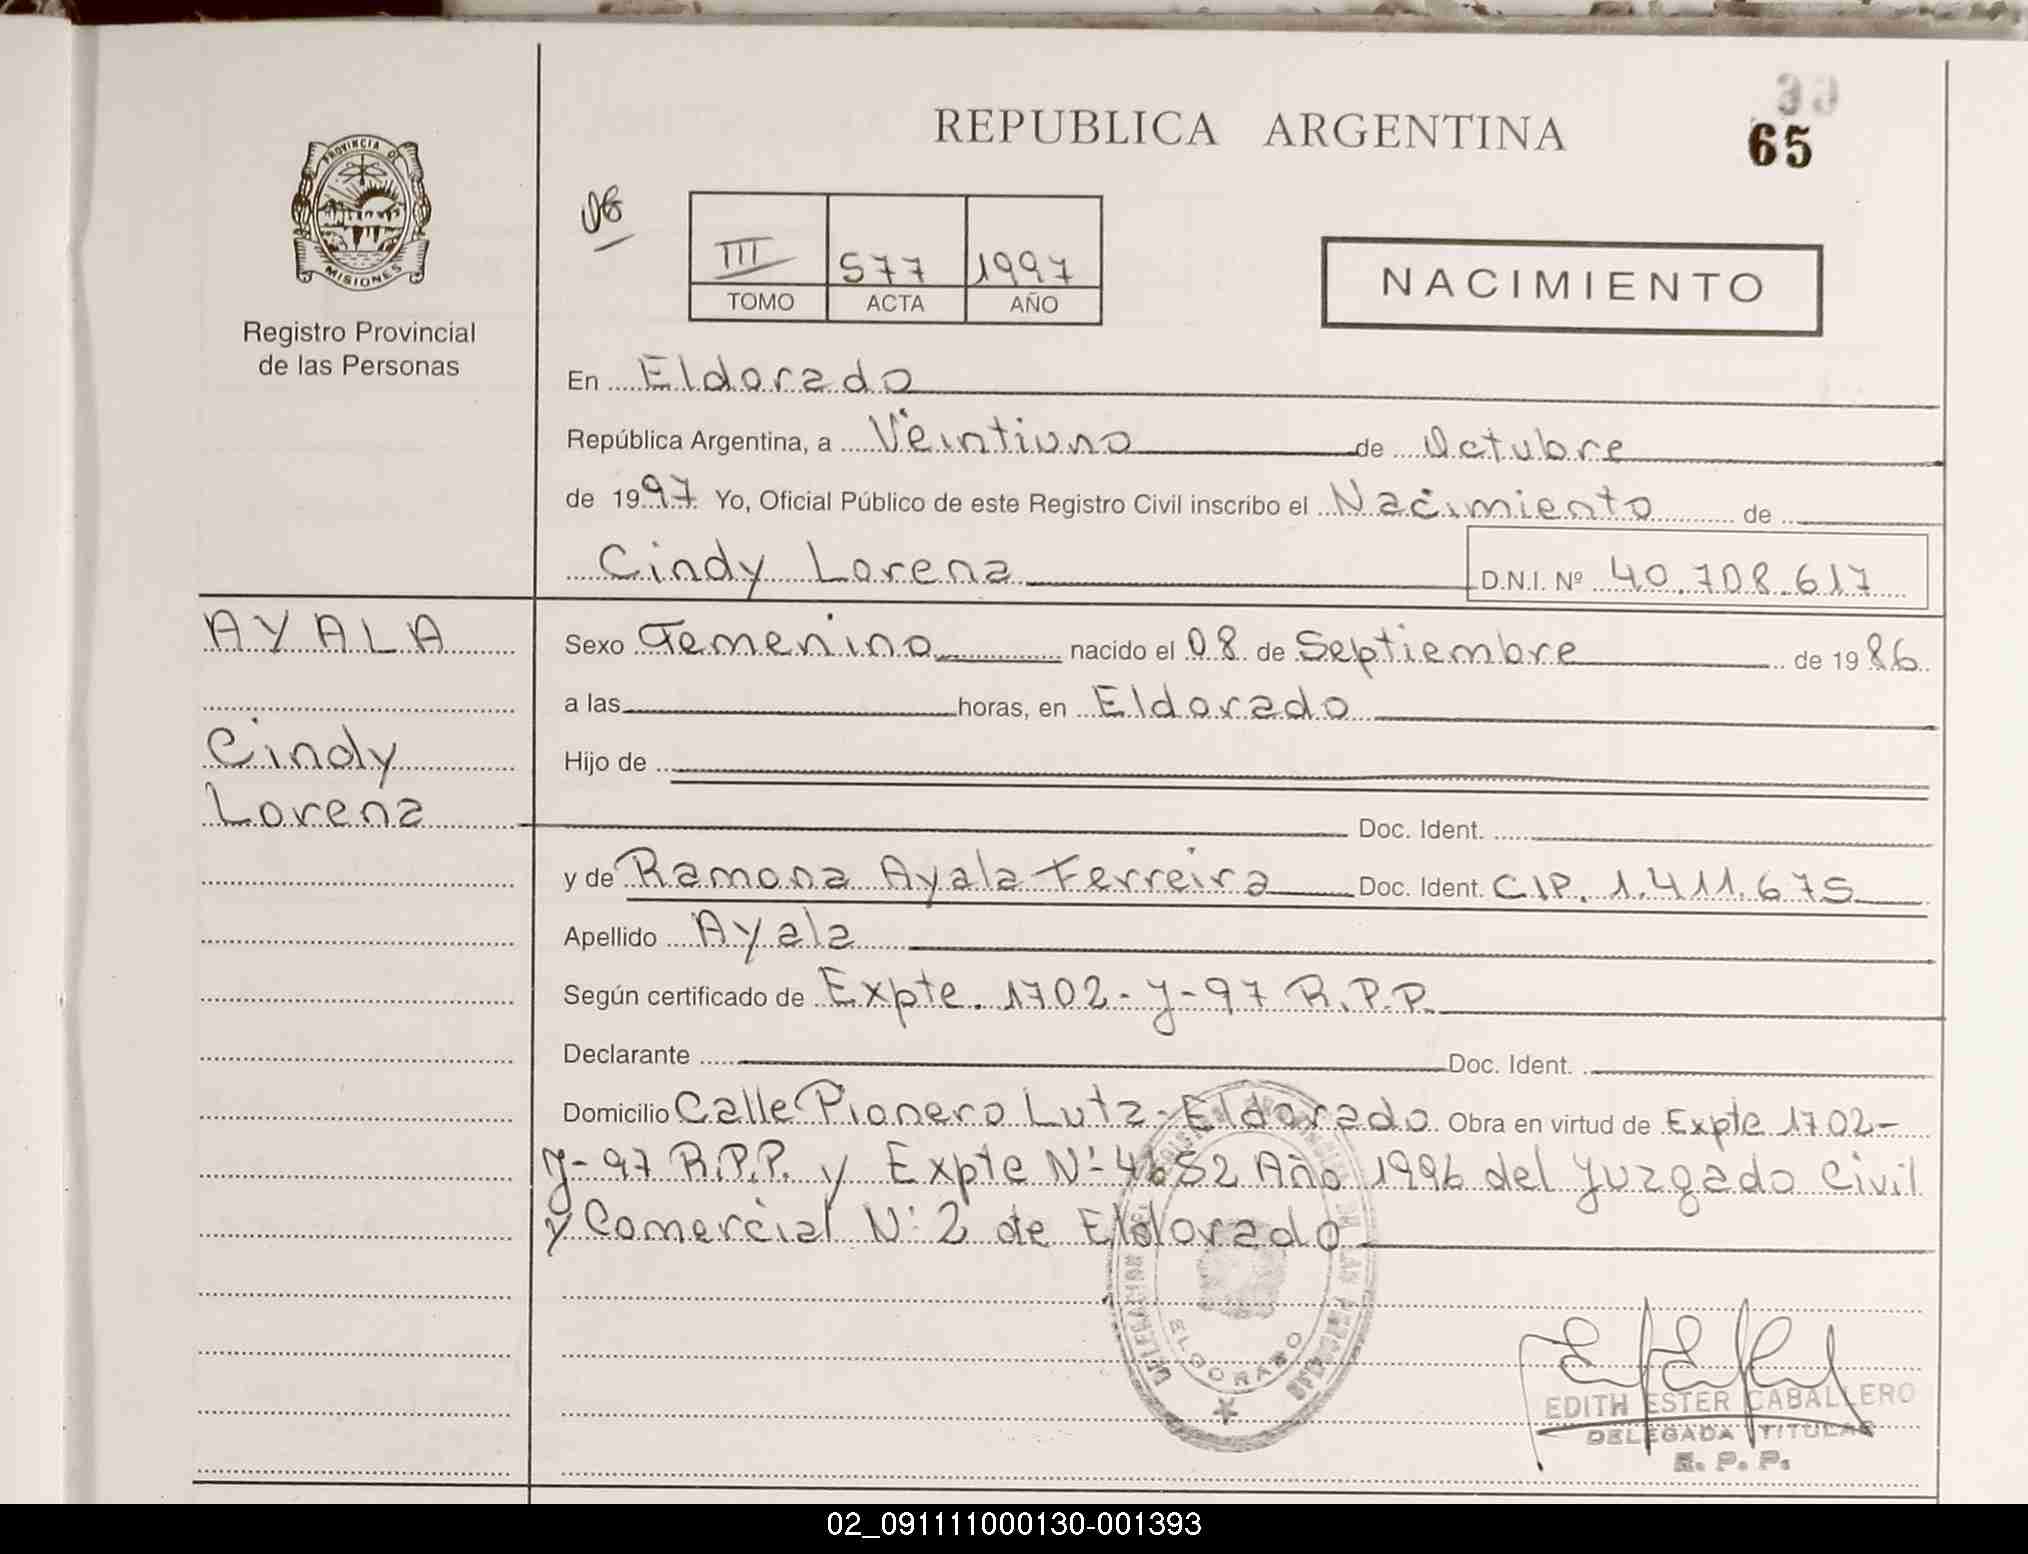 39
REPUBLICA ARGENTINA
65
PROVINCIA DE
MISIONES
Registro Provincial
de las Personas
III 577 1997
TOMO ACTA AÑO
NACIMIENTO
En Eldorado
República Argentina, a Veintiuno de Octubre
de 1997 Yo, Oficial Público de este Registro Civil inscribo el Nacimiento de
Cindy Lorena D.N.I. Nº 40.708.617
AYALA
Cindy
Lorena
Sexo Femenino nacido el 08 de Septiembre de 1986
a las horas, en Eldorado
Hijo de
Doc. Ident.
y de Ramona Ayala Ferreira Doc. Ident. CIP. 1.411.675
Apellido Ayala
Según certificado de Expte. 1702-y-97 R.P.P.
Declarante Doc. Ident.
Domicilio Calle Pionero Lutz-Eldorado Obra en virtud de Expte 1702-
y-97 R.P.P. y Expte Nº 4652 Año 1996 del Juzgado Civil
y Comercial Nº 2 de Eldorado
ELDORADO
EDITH ESTER CABALLERO
DELEGADA TITULAR
R. P. P.
02_091111000130-001393